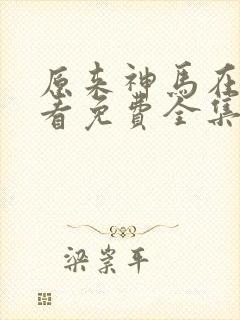 原来神马在
看免费全集
梁崇平